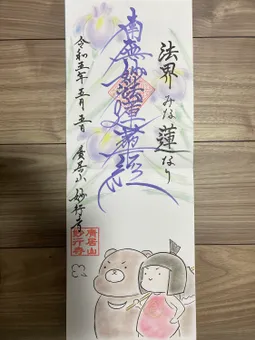 法界みな蓮なり
南無妙法蓮華経
令和五年五月五日
廣居山妙行寺
廣居山
妙行寺